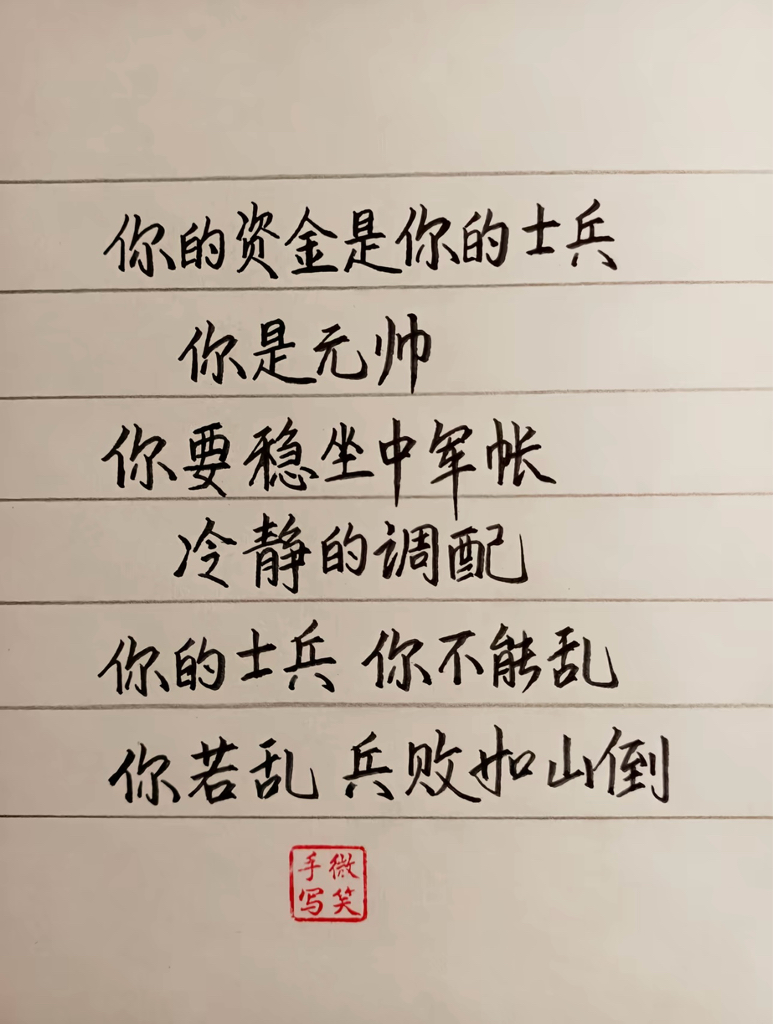 你的资金是你的士兵
你是元帅
你要稳坐中军帐
冷静的调配
你的士兵 你不能乱
你若乱 兵败如山倒
微笑
手写